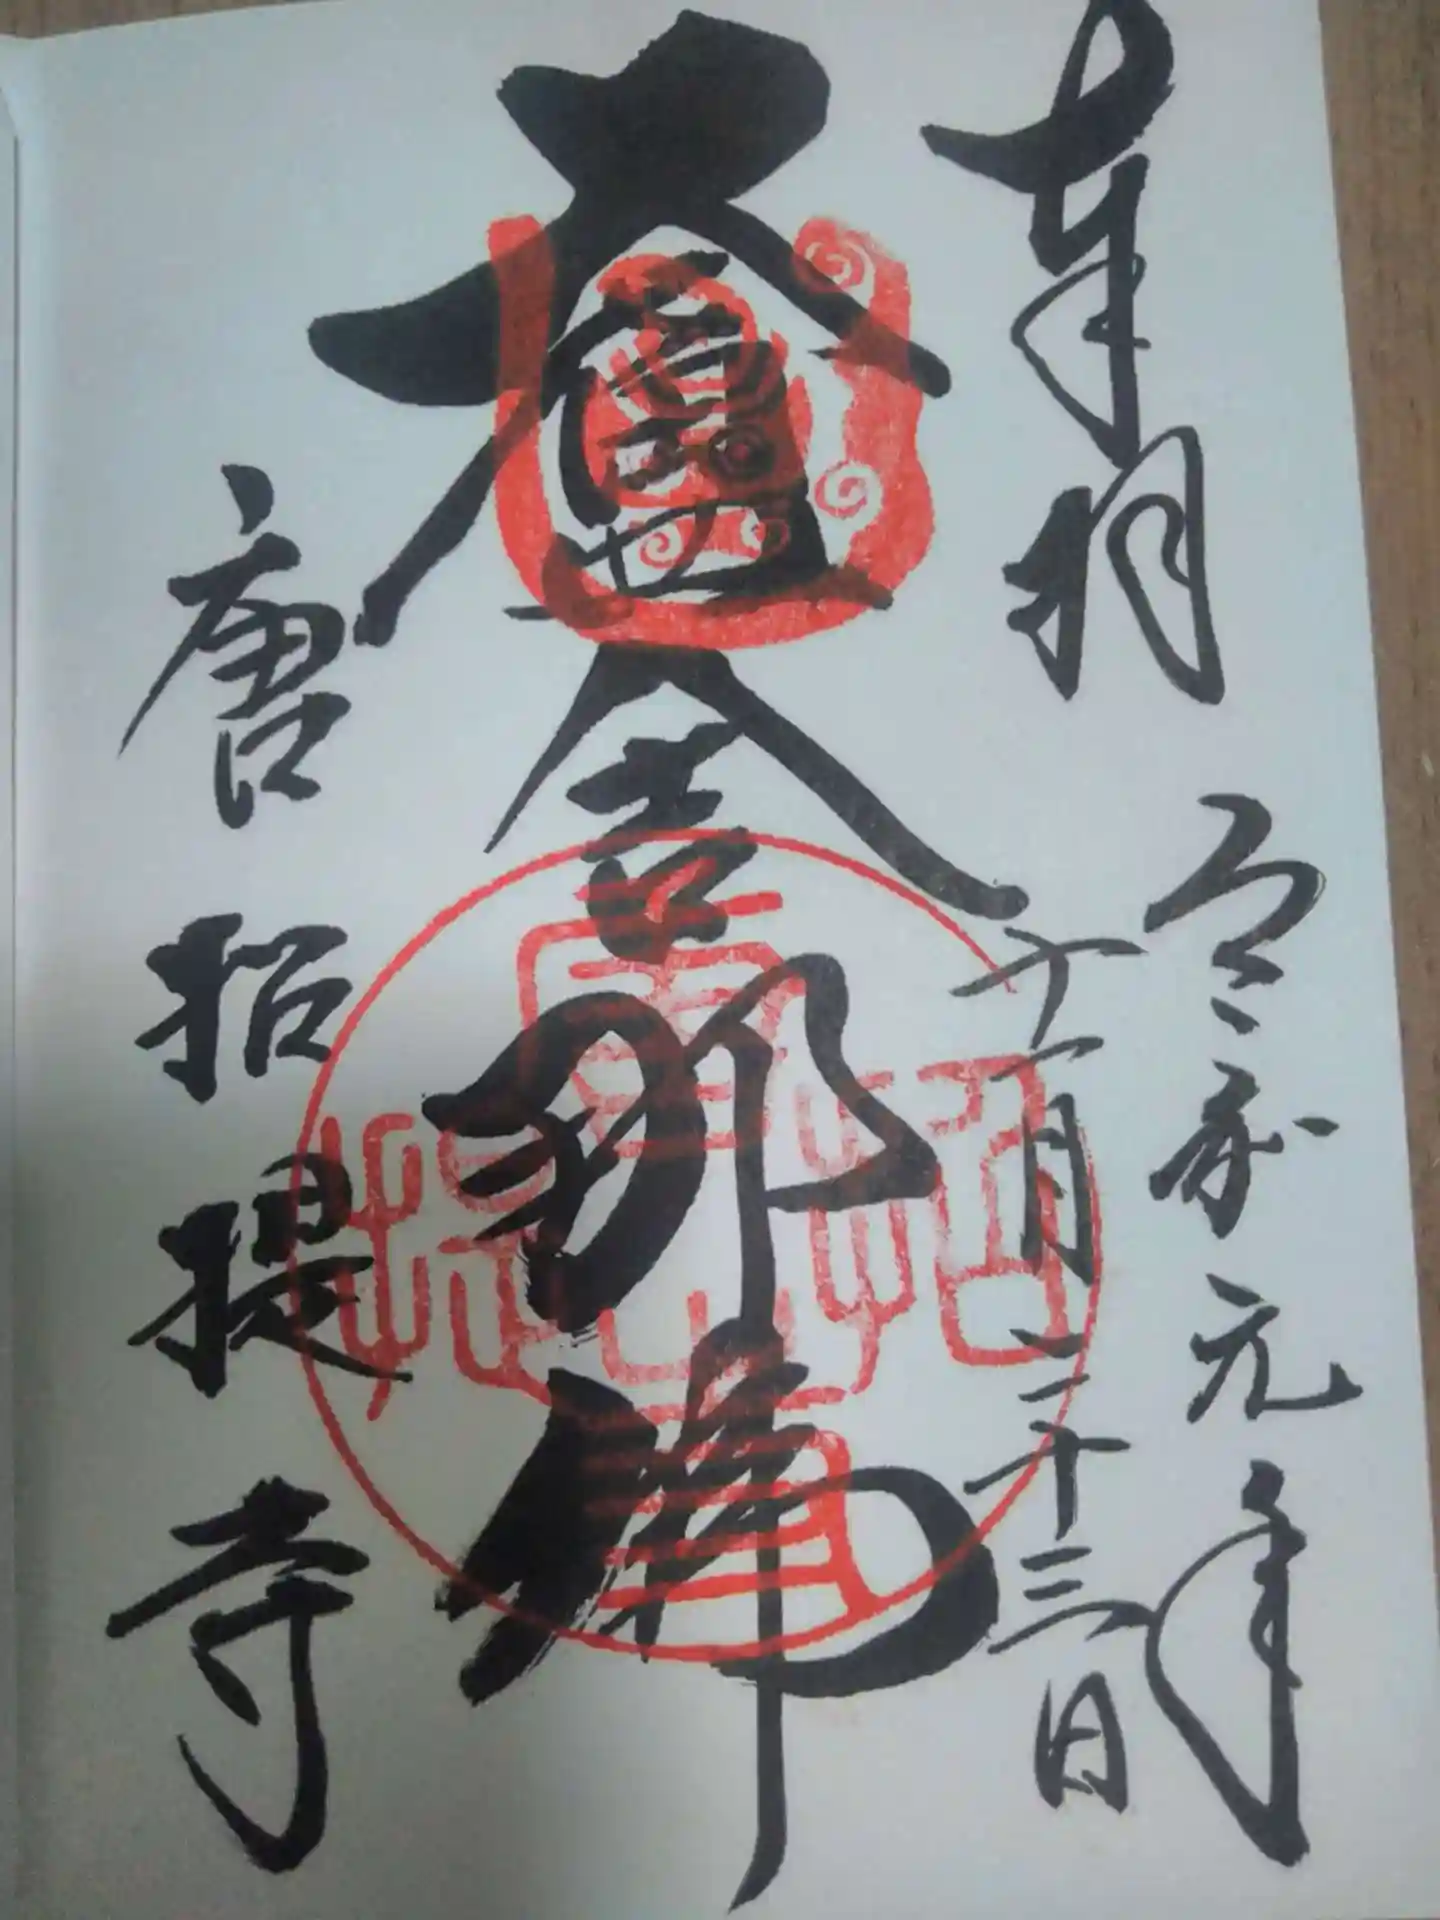 奉拝
令和元年
十一月二十三日
大盧舎那佛
唐招提寺